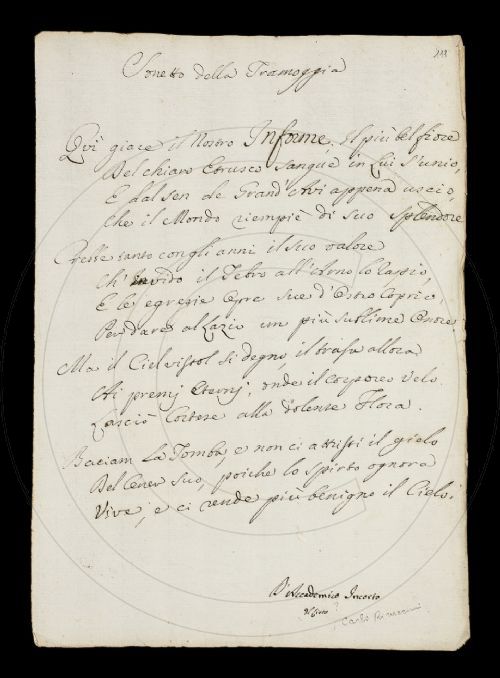 Sonetto della Tramoggia
Qui giace il Nostro Informe. Il più bel fiore
Del chiaro Etrusco Sangue in Lui s'unio,
E dal sen de Grand' Avi appena uscio,
Che il Mondo riempiè di suo Splendore
Crebbe tanto con gli anni il suo valore
Ch' Invido il Tebro all' Arno lo rapio,
E le egregie Opre sue d'Ostro coprio
Per dare al Lazio un più sublime Onore;
Ma il Ciel vistol si degno, il trasse allora
Ai premj Eterni, onde il corporeo velo
Lasciò Cortese alla dolente Flora.
Baciam La Tomba, e non ci attristi il gielo
Del Cener suo, poiche lo Spirto ognora
Vive, e ci rende più benigno il Cielo.
D' Accademico Incerto
Carlo